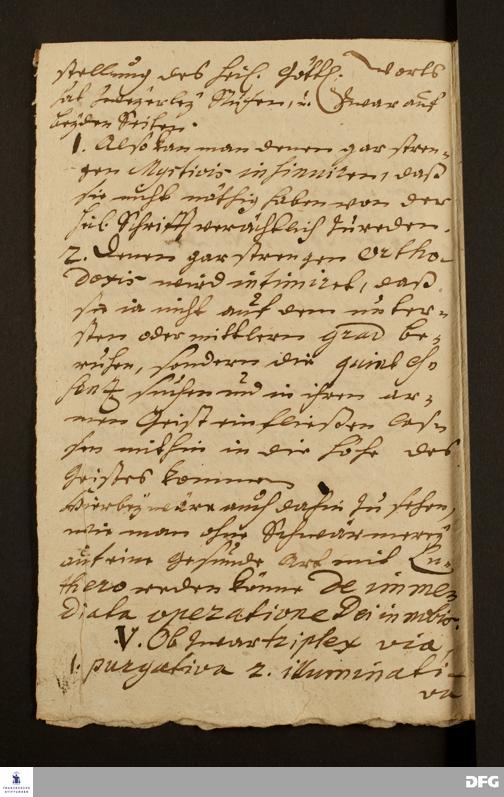 stellung des heil. Göttl. Worts
hat zweyerley Nutzen, u. zwar auf
beyden Seiten.
1. Also kan man denen gar stren-
gen Mysticis insinuiren, daß
sie nicht nöthig haben von der
heil. Schrifft verächtlich zu reden.
2. Denen gar strengen Ortho-
doxis wird intimiret, daß
sie ja nicht auf dem unter-
sten oder mittlern grad be-
ruhen, sondern die quint es-
senz suchen und in ihren ar-
men Geist einfließen las-
sen mithin in die Höhe des
Geistes kommen
Hierbey wäre auch dahin zu sehen,
wie man ohne Schwärmerey
auf eine gesunde Art mit Lu-
thero reden könne De imme-
diata operatione Dei in nobis.
V. Ob zwar triplex via,
1. purgativa 2. illuminati-
va
FRANCKESCHE STIFTUNGEN
DFG